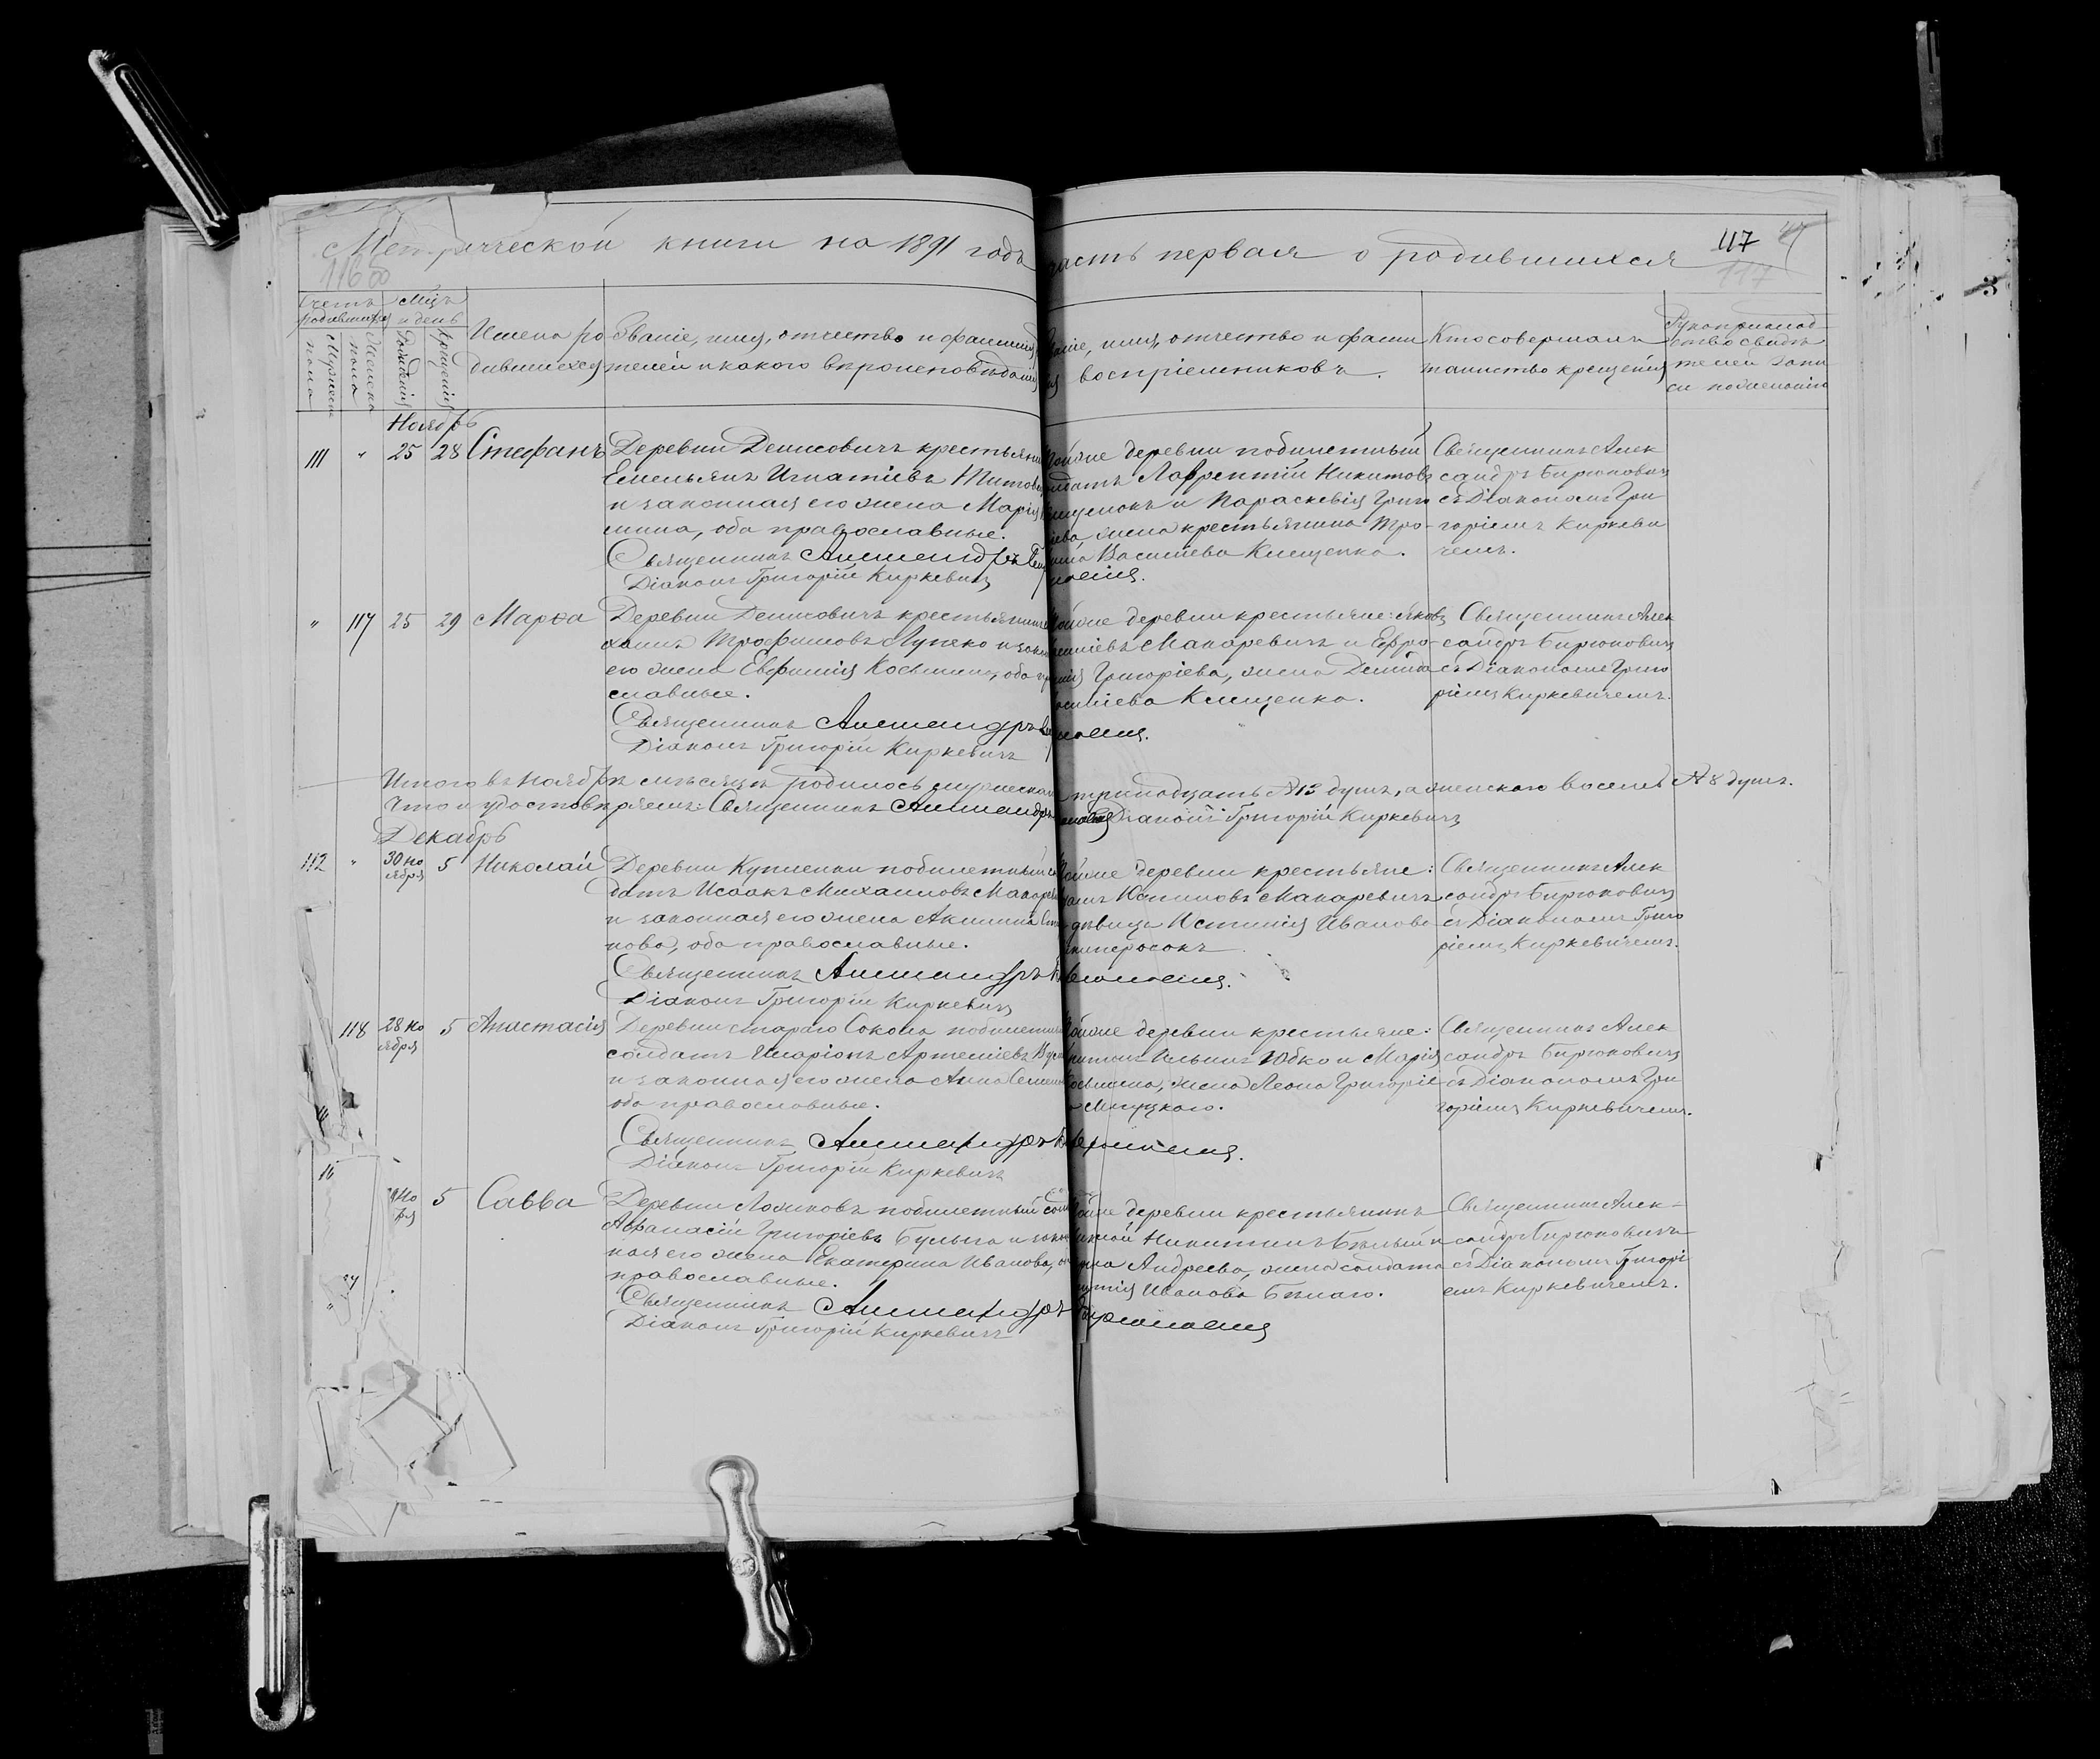 Метрической книги на 1891 годъ часть первая о родившихся
117
117
116 об
Счетъ родившихся
Мужеска пола
Женска пола
Мцъ и день
Рожденія
Крещенія
Имена ро
дившихся
Званіе, имя, отчество и фамилія
телей и какого вѣроисповѣданія
Званіе, имя, отчество и фами
воспріемниковъ.
Кто совершалъ
таинство крещенія
Рукоприклад
ство свидѣ
телей запи
си по желанію
Ноябрь
111 " 25 28 Стефанъ
Деревни Денисовичъ крестьянинъ
Емельянъ Игнатіевъ Титовъ
и законная его жена Марія
мина, оба православные.
Священникъ Александръ Бирюковичъ
Діаконъ Григорій Киркевичъ
Тойже деревни побилетный
солдатъ Лаврентій Никитовъ
и Параскевія Григо
ріева, жена крестьянина Тро-
Васильева Клещенка.
Священникъ Алек
сандръ Бирюковичъ
съ Діакономъ Гри
горіемъ Киркеви
чемъ.
" 117 25 29 Марѳа
Деревни Денисовичъ крестьянинъ
Трофимовъ Лупеко и закон
его жена Евфимія Косьмина, оба
славные.
Священникъ Александръ Бирюковичъ
Діаконъ Григорій Киркевичъ
Тойже деревни крестьяне: Яковъ
Макаревичъ и Евфро-
Григоріева, жена Демида
Клещенка.
Священникъ Алек
сандръ Бирюковичъ
съ Діакономъ Григо
ріемъ Киркевичемъ.
Итого въ Ноябрѣ мѣсяцѣ родилось мужескаго тринадцать №13 душъ, а женскаго восемь №8 душъ.
Что и удостовѣряемъ: Священникъ Александръ Бирюковичъ Діаконъ Григорій Киркевичъ
Декабрь
112 " 30 но
ября 5 Николай
Деревни Куплеики побилетный сол
датъ Исаакъ Михаиловъ Макаревичъ
и законная его жена Акилина
нова, оба православные.
Священникъ Александръ Бирюковичъ
Діаконъ Григорій Киркевичъ
Тойже деревни крестьяне:
Макаревичъ
дѣвица Юстинія Иванова
Священникъ Алек
сандръ Бирюковичъ
съ Діакономъ Григо
ріемъ Киркевичемъ.
118 28 но
ября 5 Анастасія
Деревни стараго Сокола побилетный
солдатъ Иларіонъ Артеміевъ
и законная его жена Анна
оба православные.
Священникъ Александръ Бирюковичъ
Діаконъ Григорій Киркевичъ
Тойже деревни крестьяне:
Ильинъ Юбко и Марія
Косьмина, жена Леона Григоріе
Священникъ Алек
сандръ Бирюковичъ
съ Діакономъ Гри
горіемъ Киркевичемъ.
5 Савва
Деревни Ложиковъ побилетный солд
Аѳанасій Григоріевъ Булыга и закон
ная его жена Екатерина Иванова,
православные.
Священникъ Александръ Бирюковичъ
Діаконъ Григорій Киркевичъ
Тойже деревни крестьянинъ
Никитинъ Бѣлый и
Андреева, жена солдата
Иванова Бѣлаго.
Священникъ Алек-
сандръ Бирюковичъ
съ Діакономъ Григорі
емъ Киркевичемъ.